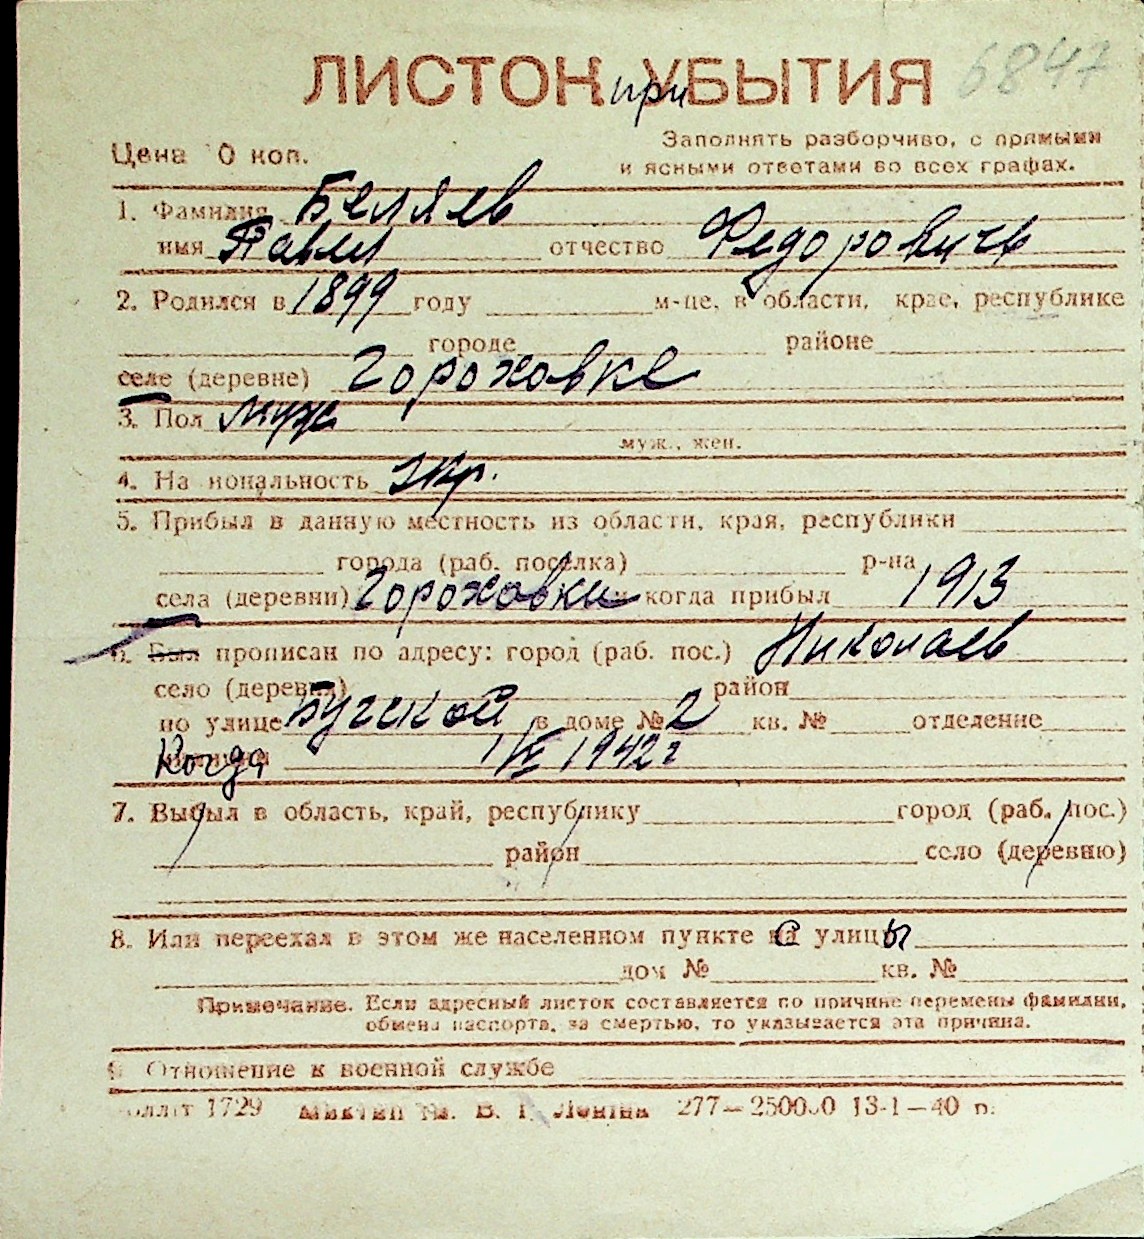 ЛИСТОК при УБЫТИЯ 6847
Цена 0 коп. Заполнять разборчиво, с прямыми
и ясными ответами во всех графах.
1. Фамилия Беляев
имя Павел отчество Федорович
2. Родился в 1899 году м-це, в области, крае, республике
городе районе
селе (деревне) Гороховке
3. Пол муж
муж., жен.
4. Национальность укр.
5. Прибыл в данную местность из области, края, республики
города (раб. поселка) р-на
села (деревни) Гороховки и когда прибыл 1913
6. Был прописан по адресу: город (раб. пос.) Николаев
село (деревня) район
по улице Бугской в доме № 2 кв. № отделение
Когда 1942 г
7. Выбыл в область, край, республику город (раб. пос.)
район село (деревню)
8. Или переехал в этом же населенном пункте с улицы
дом № кв. №
Примечание. Если адресный листок составляется по причине перемены фамилии,
обмена паспорта, за смертью, то указывается эта причина.
9. Отношение к военной службе
1729 В. Леніна 277—250000 13-1—40 р.